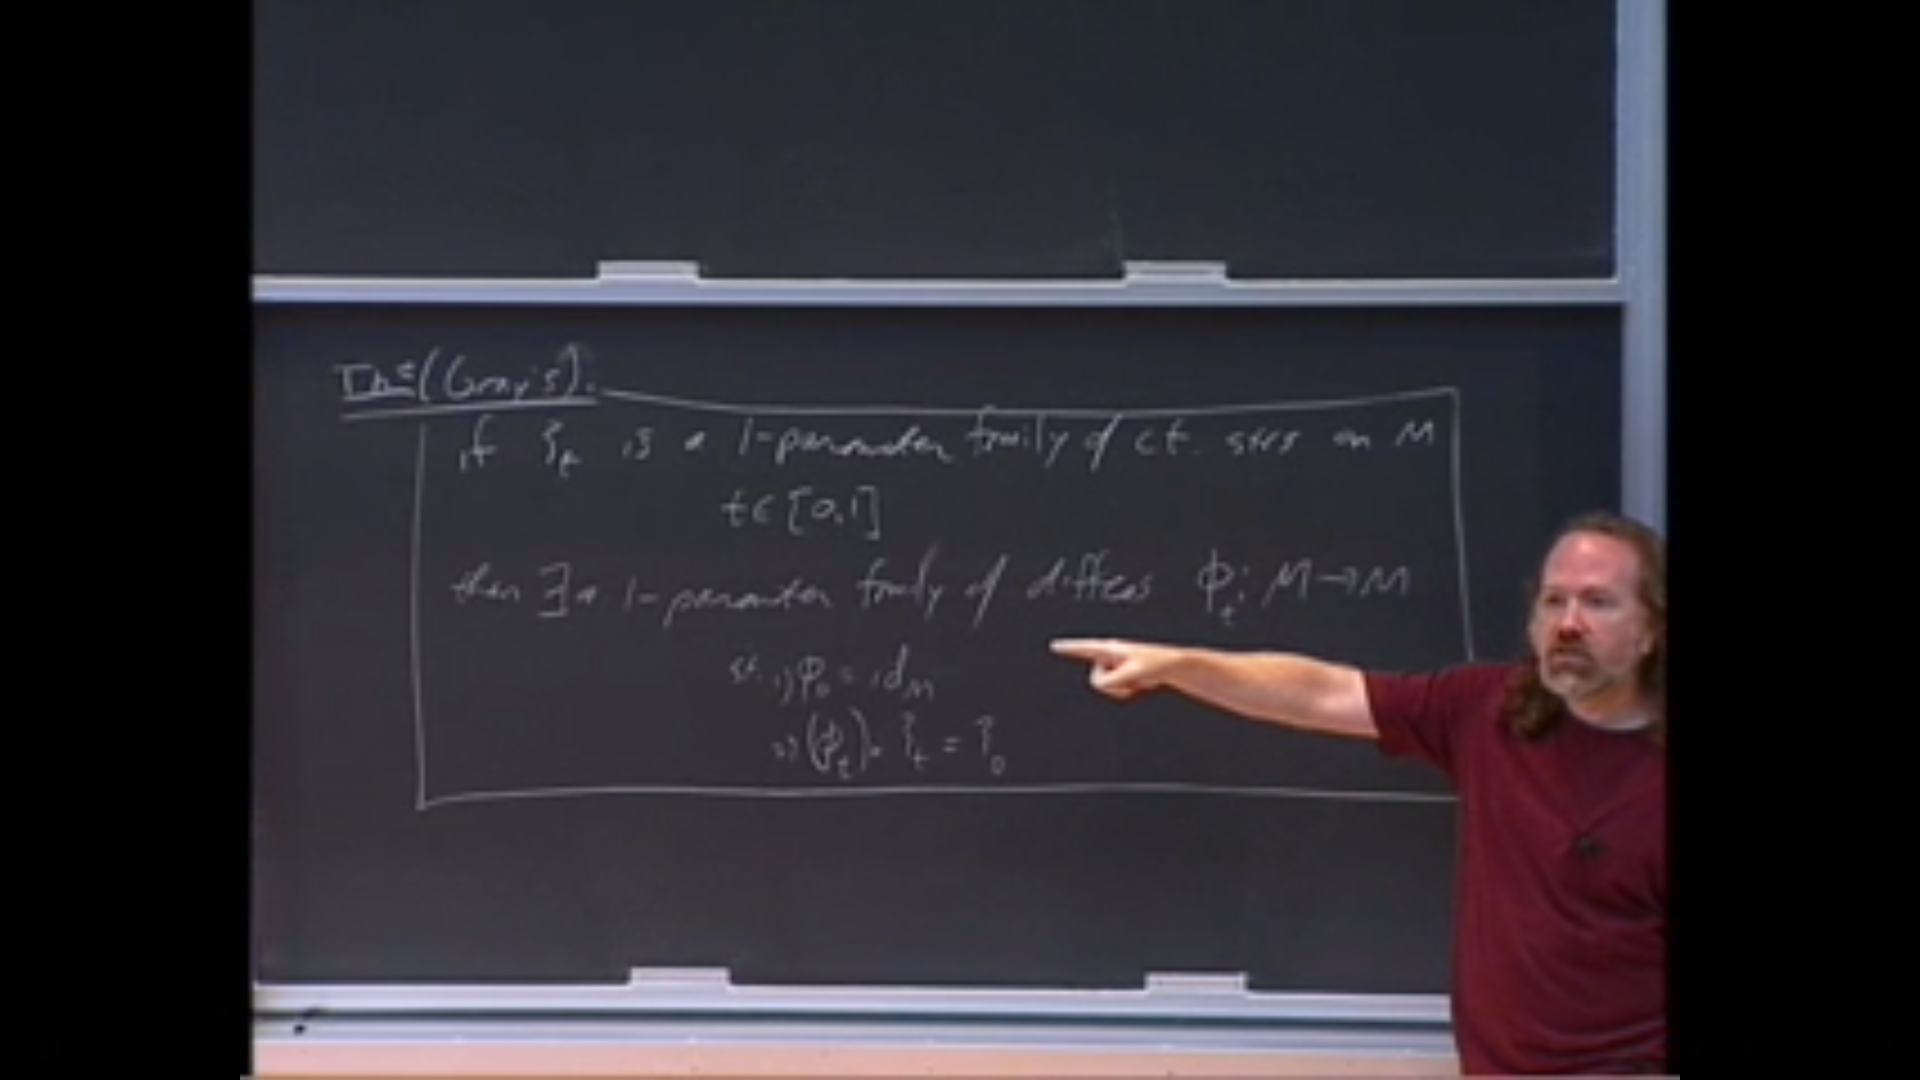 Thm (Gray's).
if ξ_t is a 1-parameter family of ct. strs on M
t ∈ [0,1]
then ∃ a 1-parameter family of diffeos ϕ_t: M → M
st. 1) ϕ_0 = id_M
2) (ϕ_t)_* ξ_t = ξ_0